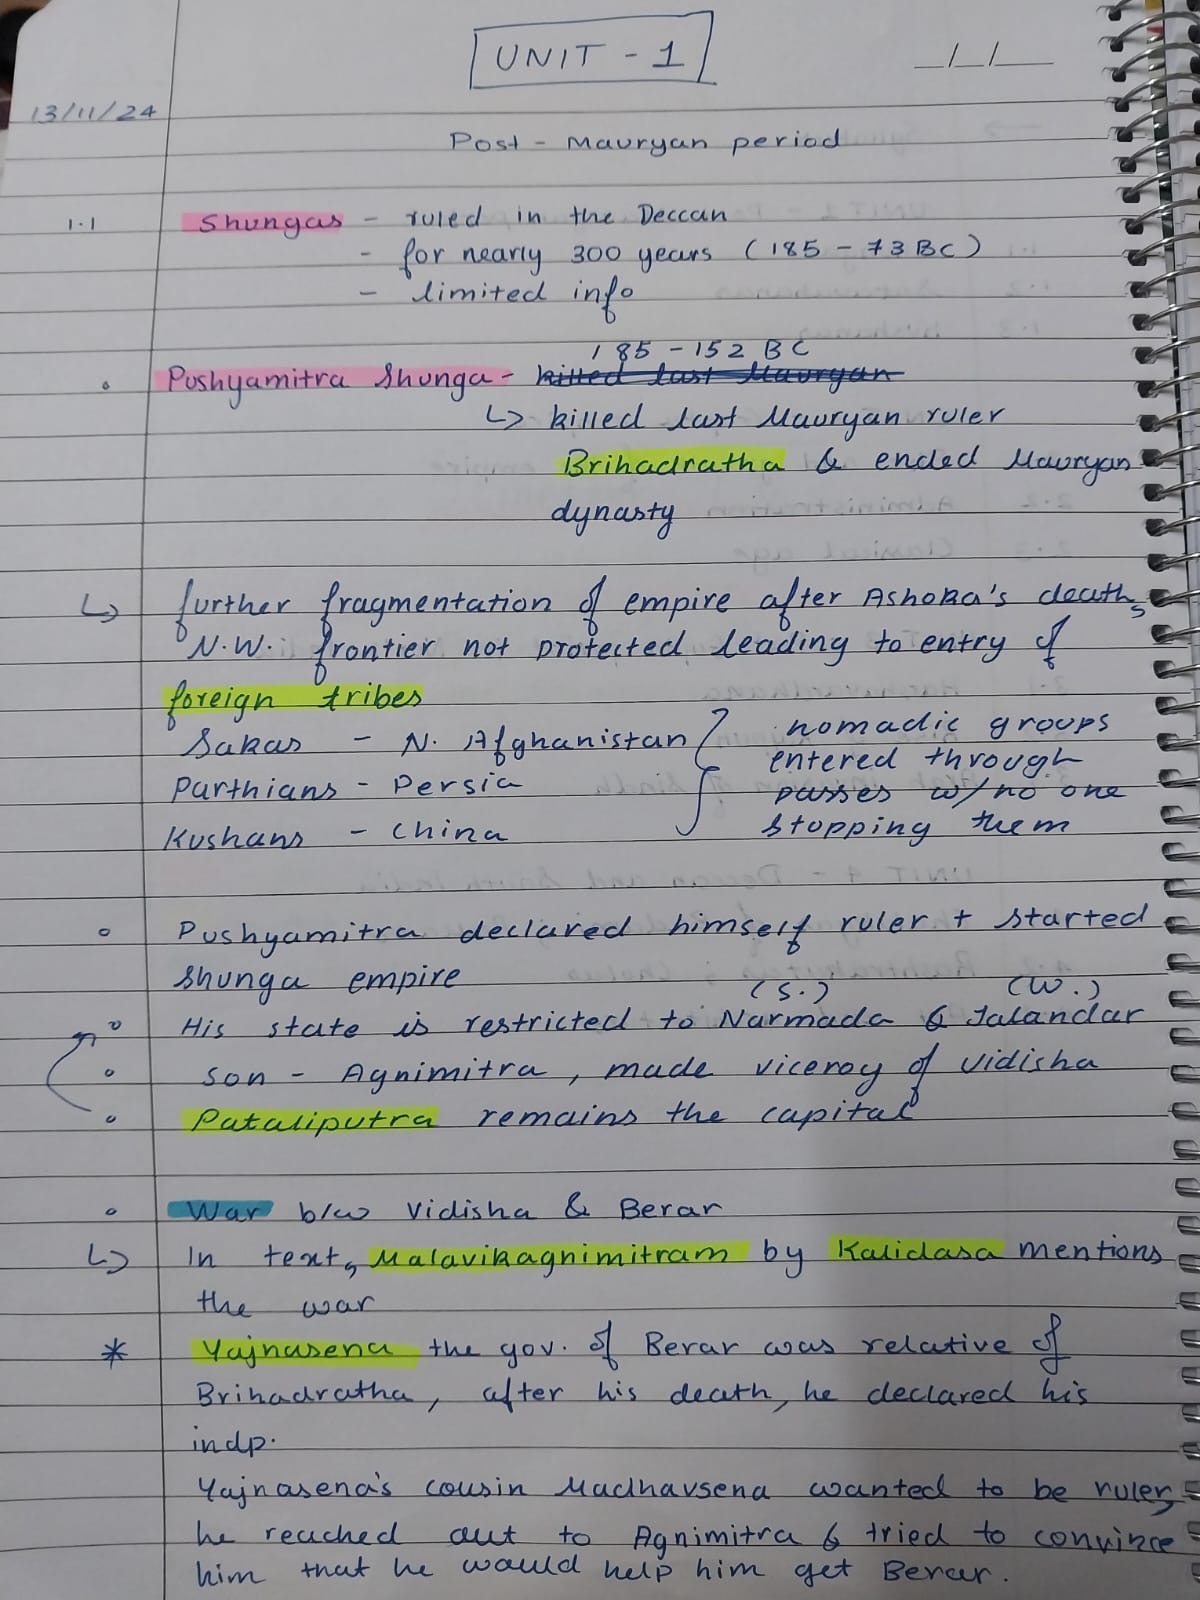 UNIT - 1
_/_/__
13/11/24
Post - Mauryan period
1.1 Shungas - ruled in the Deccan
- for nearly 300 years (185 - 73 BC)
- limited info
185 - 152 BC
• Pushyamitra Shunga - killed last Mauryan
↳ killed last Mauryan ruler
Brihadratha & ended Mauryan
dynasty
↳ further fragmentation of empire after Ashoka's death,
N.W. frontier not protected leading to entry of
foreign tribes
Sakas - N. Afghanistan
Parthians - Persia
Kushans - China
nomadic groups
entered through
passes w/ no one
stopping them
• Pushyamitra declared himself ruler + started
Shunga empire
(S.) (W.)
• His state is restricted to Narmada & Jalandar
• son - Agnimitra, made viceroy of Vidisha
• Pataliputra remains the capital
• War b/w Vidisha & Berar
↳ In text, Malavikagnimitram by Kalidasa mentions
the war
* Yajnasena the gov. of Berar was relative of
Brihadratha, after his death, he declared his
indp.
Yajnasena's cousin Madhavsena wanted to be ruler,
he reached out to Agnimitra & tried to convince
him that he would help him get Berar.